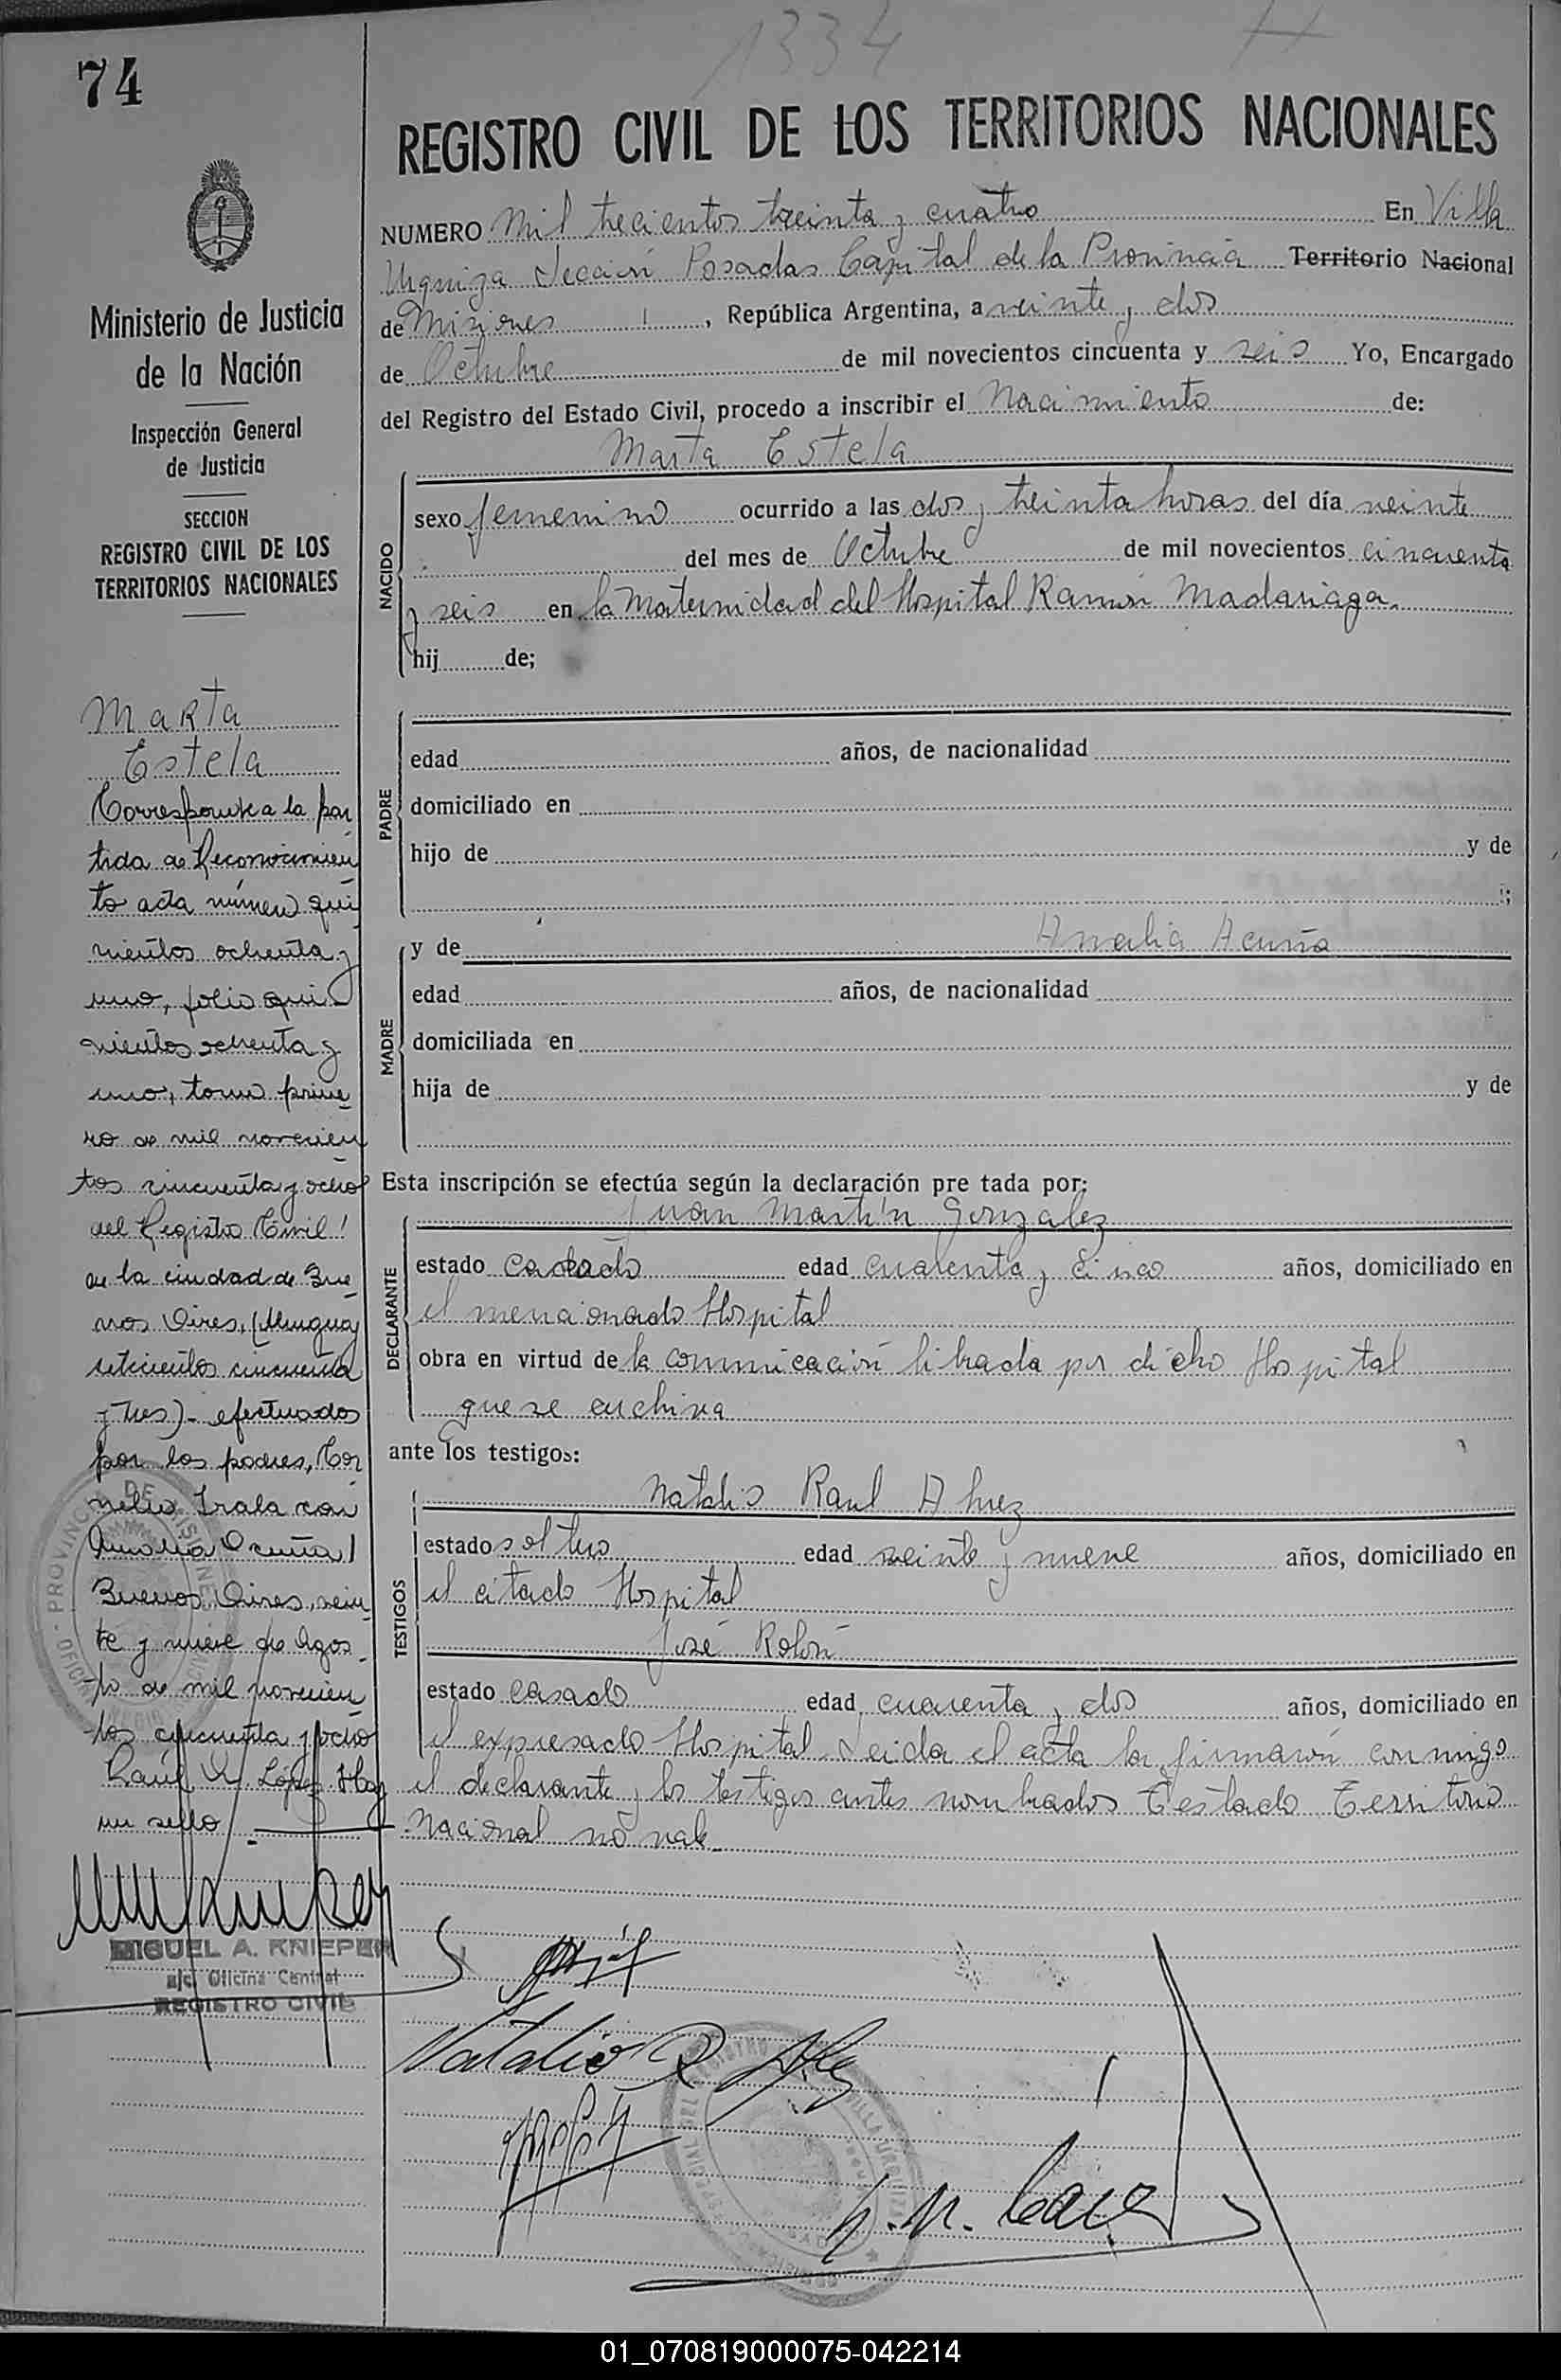 1334
74
REGISTRO CIVIL DE LOS TERRITORIOS NACIONALES
NUMERO Mil trecientos treinta y cuatro En Villa
Urquiza Sección Posadas Capital de la Provincia Territorio Nacional
de Misiones, República Argentina, a veinte y dos
de Octubre de mil novecientos cincuenta y seis Yo, Encargado
del Registro del Estado Civil, procedo a inscribir el Nacimiento de:
Marta Estela
NACIDO
sexo femenino ocurrido a las dos y treinta horas del día veinte
del mes de Octubre de mil novecientos cincuenta
y seis en la Maternidad del Hospital Ramón Madariaga
hij de;
PADRE
edad años, de nacionalidad
domiciliado en
hijo de y de
y de Amalia Acuña
MADRE
edad años, de nacionalidad
domiciliada en
hija de y de
Esta inscripción se efectúa según la declaración pre tada por:
Juan Martín Gonzalez
DECLARANTE
estado casado edad cuarenta y cinco años, domiciliado en
el mencionado Hospital
obra en virtud de la comunicación librada por dicho Hospital
que se archiva
ante los testigos:
Natalio Raul
TESTIGOS
estado soltero edad veinte y nueve años, domiciliado en
el citado Hospital
José Rolón
estado casado edad cuarenta y dos años, domiciliado en
el expresado Hospital Leida el acta la firmaron conmigo
el declarante y los testigos antes nombrados Testado Territorio
Nacional no vale
Natalio R
Ministerio de Justicia
de la Nación
Inspección General
de Justicia
SECCION
REGISTRO CIVIL DE LOS
TERRITORIOS NACIONALES
Marta
Estela
Corresponde a la par
tida de Reconocimien
to acta número qui
nientos ochenta y
uno, folio qui
nientos ochenta y
uno, tomo prime
ro de mil novecien
tos cincuenta y ocho
del Registro Civil
de la ciudad de Bue
nos Aires, (Uruguay
setecientos cincuenta
y tres)- efectuados
por los padres, Cor
nelio Irala con
Amalia Acuña
Buenos Aires, vein
te y nueve de Agos
to de mil novecien
tos cincuenta y ocho
Raúl López Hay
un sello
MIGUEL A. KNIEPER
a/c Oficina Central
REGISTRO CIVIL
01_070819000075-042214